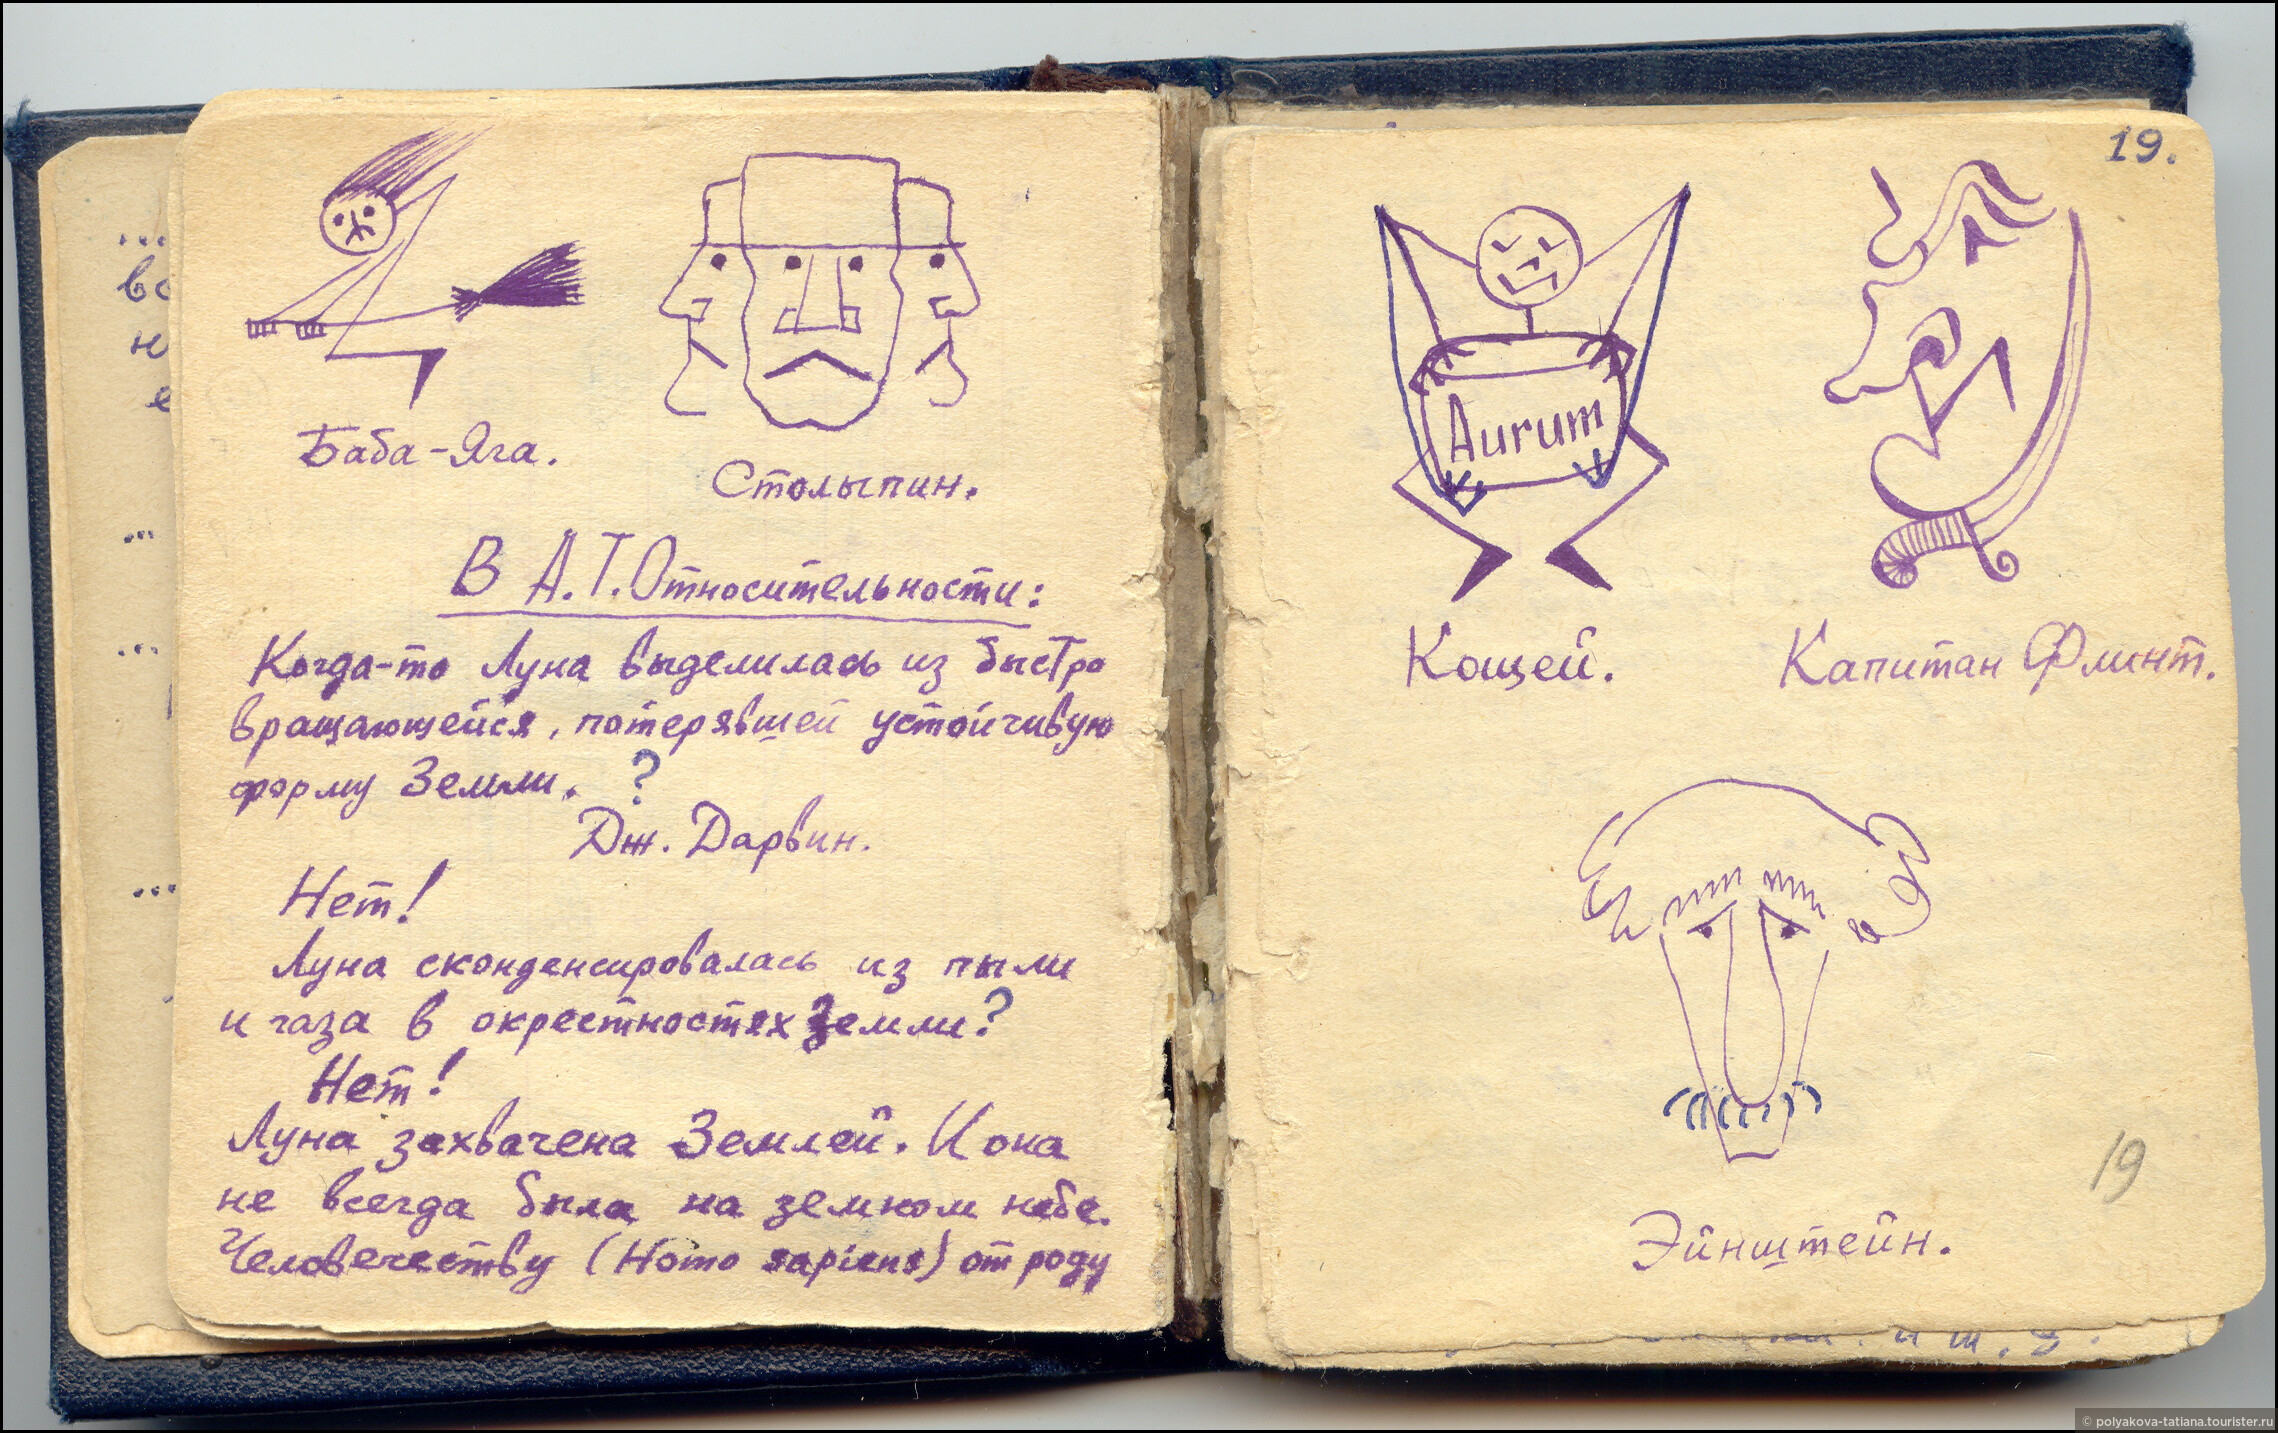 Баба-Яга.
Столыпин.
В А.Т.Относительности:
Когда-то Луна выделилась из быстро
вращающейся, потерявшей устойчивую
форму Земли. ?
Дж. Дарвин.
Нет!
Луна сконденсировалась из пыли
и газа в окрестностях Земли?
Нет!
Луна захвачена Землей. И она
не всегда была на земном небе.
Человечеству (Homo sapiens) от роду
19.
Aurum
Кощей.
Капитан Флинт.
19
Эйнштейн.
© polyakova-tatiana.tourister.ru